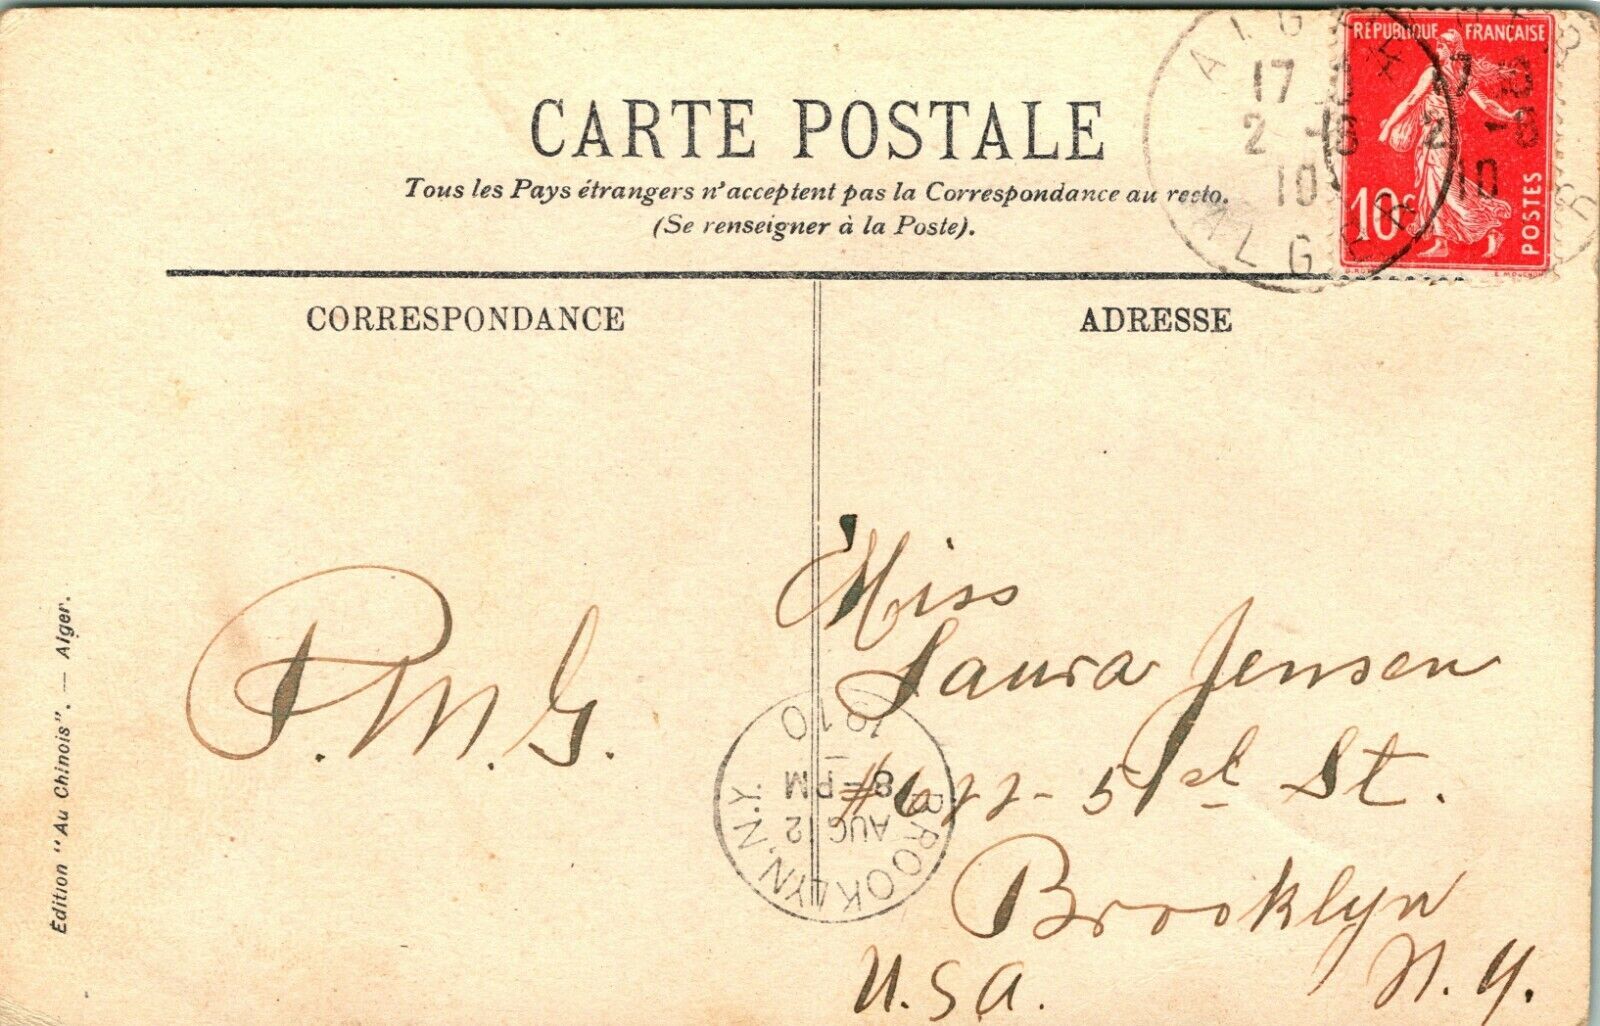 CARTE POSTALE
Tous les Pays étrangers n'acceptent pas la Correspondance au recto.
(Se renseigner à la Poste).
REPUBLIQUE FRANÇAISE
10c
POSTES
ALGER
17
2 -8
10
ALGER
17
2 -8
10
CORRESPONDANCE
ADRESSE
P.M.G.
Miss
Laura Jensen
51st St.
Brooklyn
N.Y.
U.S.A.
BROOKLYN, N.Y.
AUG 12
8 - PM
1910
Édition "Au Chinois". — Alger.